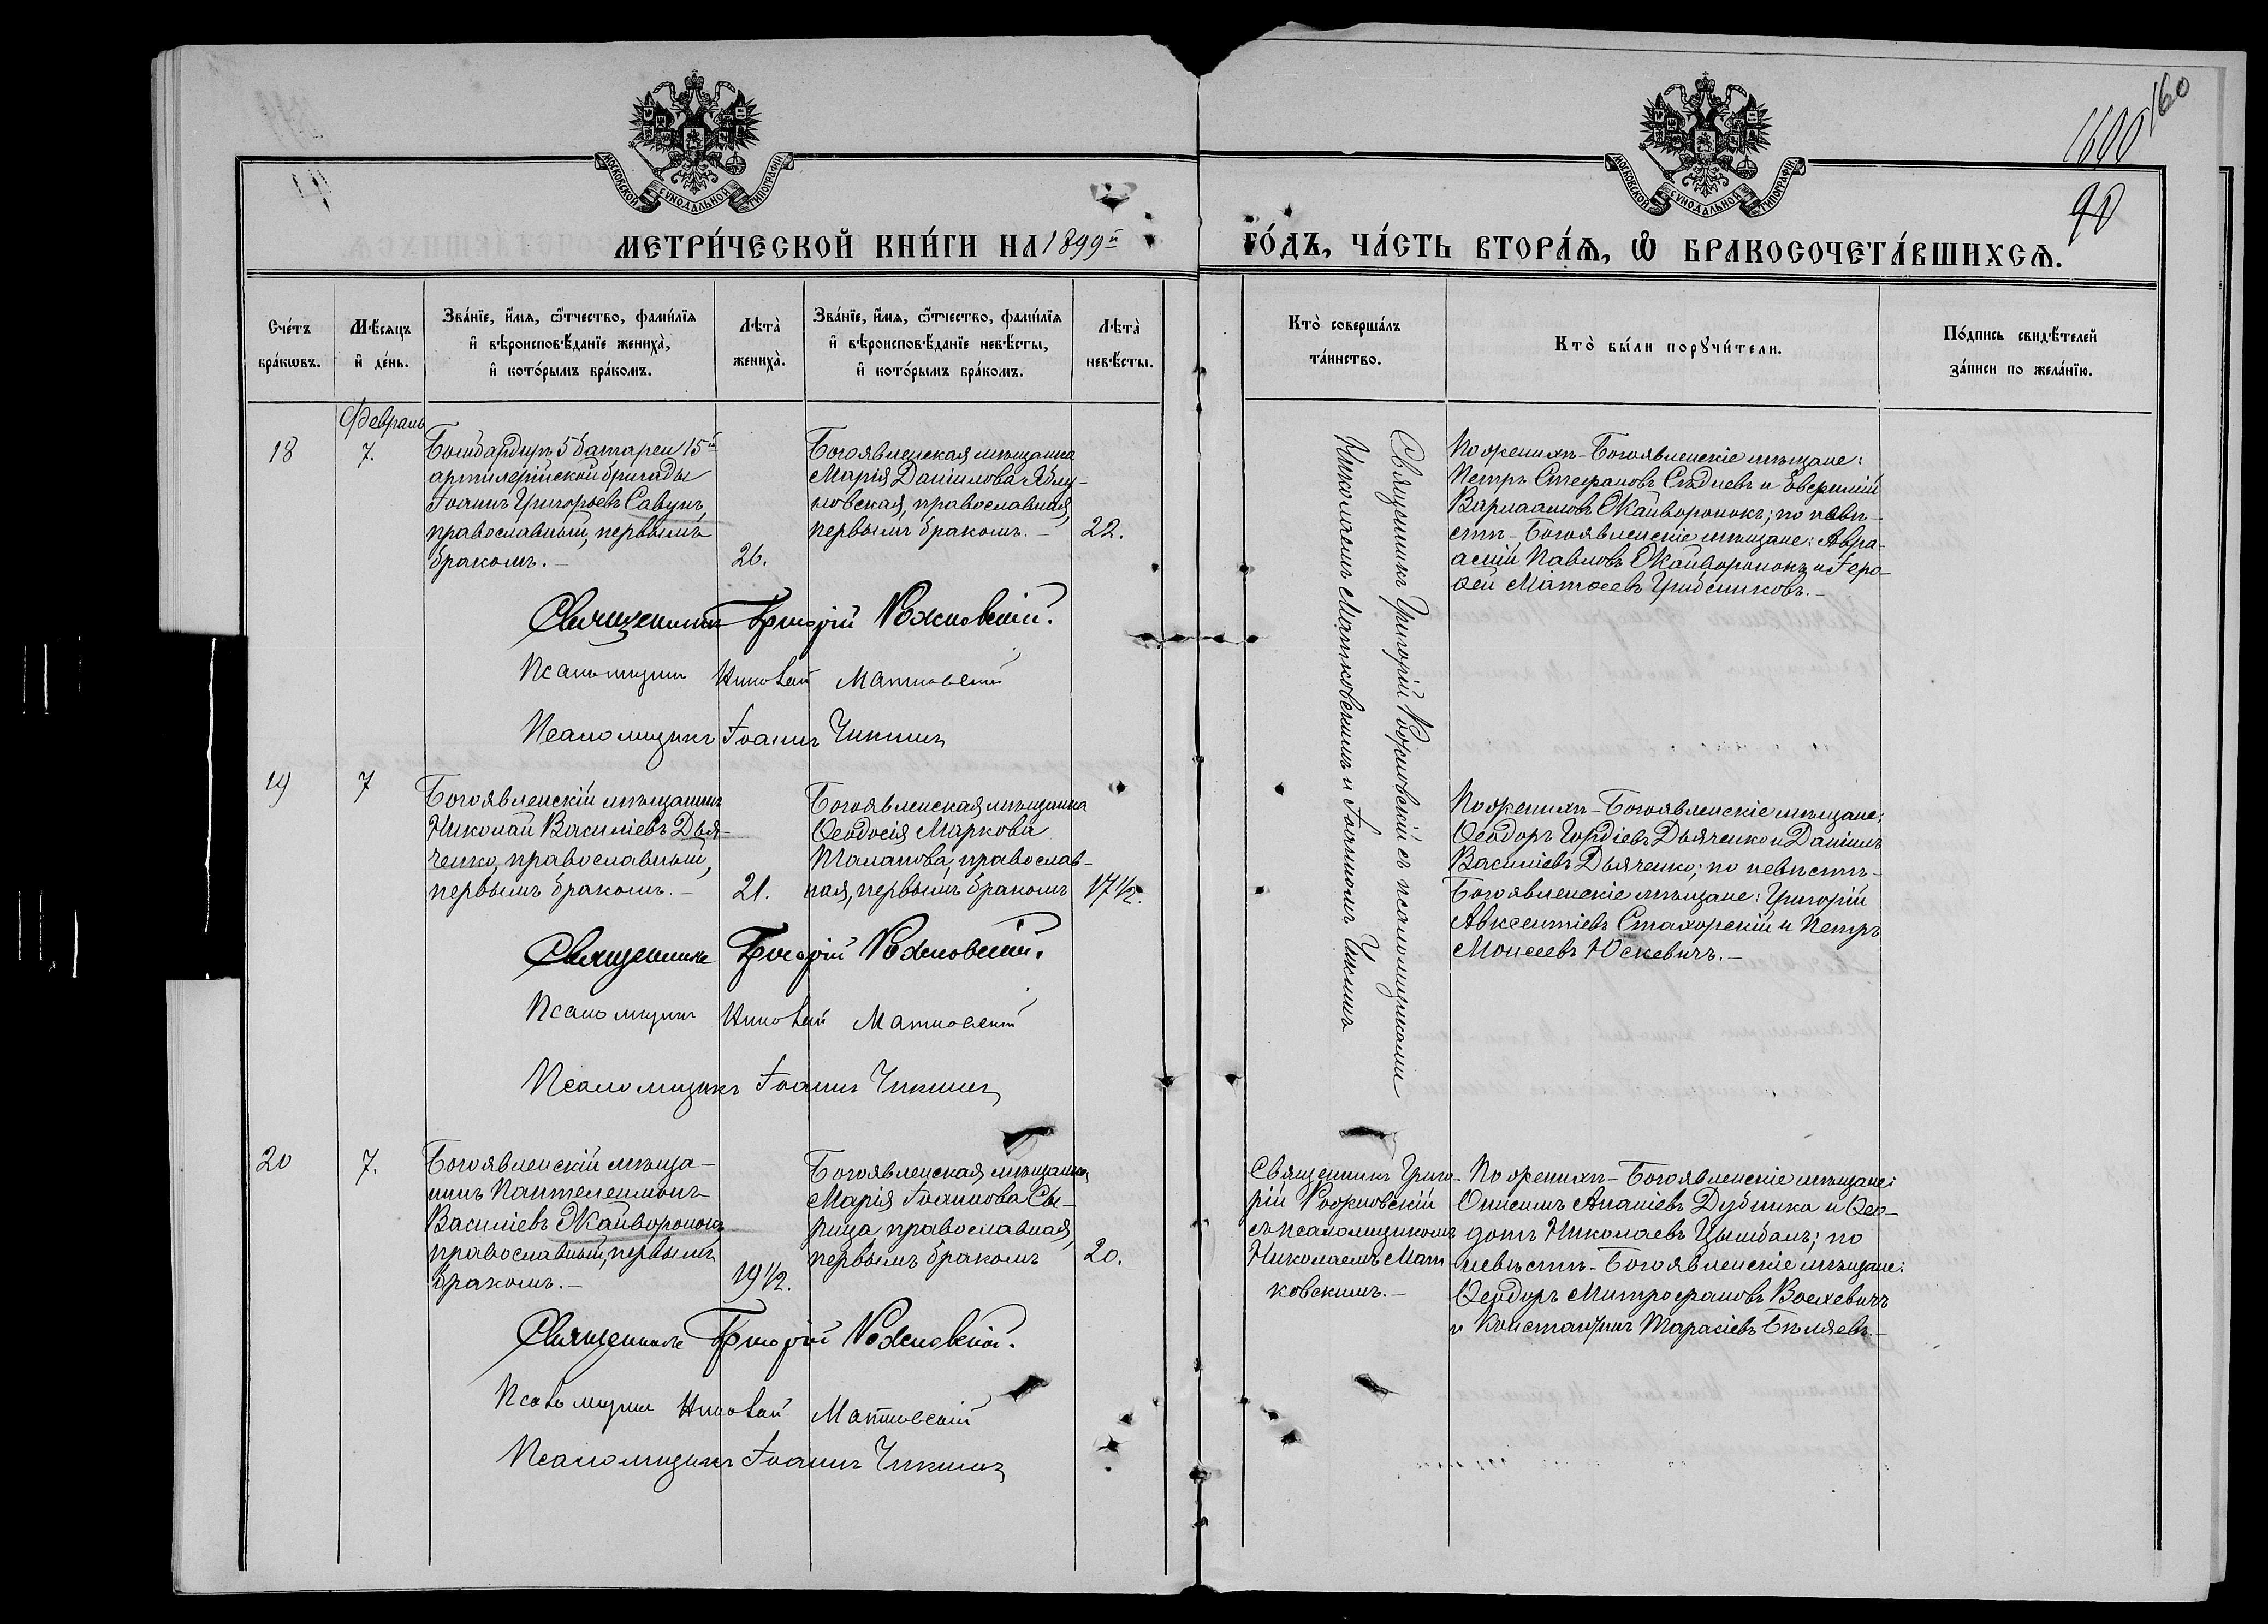 160
1600
90
МОСКОВСКОЙ СѴНОДАЛЬНОЙ ТИПОГРАФІИ
МОСКОВСКОЙ СѴНОДАЛЬНОЙ ТИПОГРАФІИ
МЕТРИ́ЧЕСКОЙ КНИ́ГИ НА 1899й ГО́ДЪ, ЧА́СТЬ ВТОРА́Ѧ, Ѽ БРАКОСОЧЕТА́ВШИХСѦ.
Сче́тъ бра́кѡвъ.
Мѣ́сяцъ и҆ де́нь.
Зва́нїе, и҆́мѧ, ѻ҆́тчество, фами́лїѧ
и҆ вѣроисповѣ́данїе жениха̀,
и҆ кото́рымъ бра́комъ.
Лѣта̀ жениха̀.
Зва́нїе, и҆́мѧ, ѻ҆́тчество, фами́лїѧ
и҆ вѣроисповѣ́данїе невѣ́сты,
и҆ кото́рымъ бра́комъ.
Лѣта̀ невѣ́сты.
Кто̀ соверша́лъ та́инство.
Кто̀ бы́ли порꙋчи́тели.
По́дпись свидѣ́телей за́писи по жела́нїю.
Февраль
18
7.
Бомбардиръ 5 батареи 15й
артилерійской бригады
Іоаннъ Григорьевъ Савунъ,
православный, первымъ
бракомъ.—
26.
Богоявленская мѣщанка
Марія Даніилова Яблу-
новская, православная,
первымъ бракомъ.—
22.
Священникъ Григорій Рожновскій съ псаломщиками
Николаемъ Матковскимъ и Іоанномъ Чикинъ
По женихѣ - Богоявленскіе мѣщане:
Петръ Стефановъ Слѣдневъ и Евфимій
Варлаамовъ Жайворонокъ; по невѣ-
стѣ - Богоявленскіе мѣщане: Авра-
амій Павловъ Жайворонокъ и Еро-
фей Матѳеевъ
Священникъ Григорій Рожновскій.
Псаломщикъ Николай Матковскій
Псаломщикъ Іоаннъ Чикинъ
19
7
Богоявленскій мѣщанинъ
Николай Василіевъ Дья-
ченко, православный,
первымъ бракомъ.—
21.
Богоявленская мѣщанка
Ѳеодосія Маркова
Таланова, православ-
ная, первымъ бракомъ
17 1/2.
По женихѣ - Богоявленскіе мѣщане:
Ѳеодоръ Гордіевъ Дьяченко и Даніилъ
Василіевъ Дьяченко; по невѣстѣ-
Богоявленскіе мѣщане: Григорій
Авксентіевъ Стахорскій и Петръ
Моисеевъ Юскевичъ.—
Священникъ Григорій Рожновскій.
Псаломщикъ Николай Матковскій
Псаломщикъ Іоаннъ Чикинъ
20
7.
Богоявленскій мѣща-
нинъ Пантелеимонъ
Василіевъ Жайворонокъ
православный, первымъ
бракомъ.—
19 1/2.
Богоявленская мѣщанка
Марія Іоаннова Сы-
рица православная,
первымъ бракомъ
20.
Священникъ Григо-
рій Рожновскій
съ псаломщикомъ
Николаемъ Мат-
ковскимъ.—
По женихѣ - Богоявленскіе мѣщане:
Онисимъ Ананіевъ Дубинка и Ѳео-
дотъ Николаевъ Цымбалъ; по
невѣстѣ - Богоявленскіе мѣщане:
Ѳеодоръ Митрофановъ
и Константинъ Тарасіевъ Бѣляевъ.—
Священникъ Григорій Рожновскій.
Псаломщикъ Николай Матковскій
Псаломщикъ Іоаннъ Чикинъ